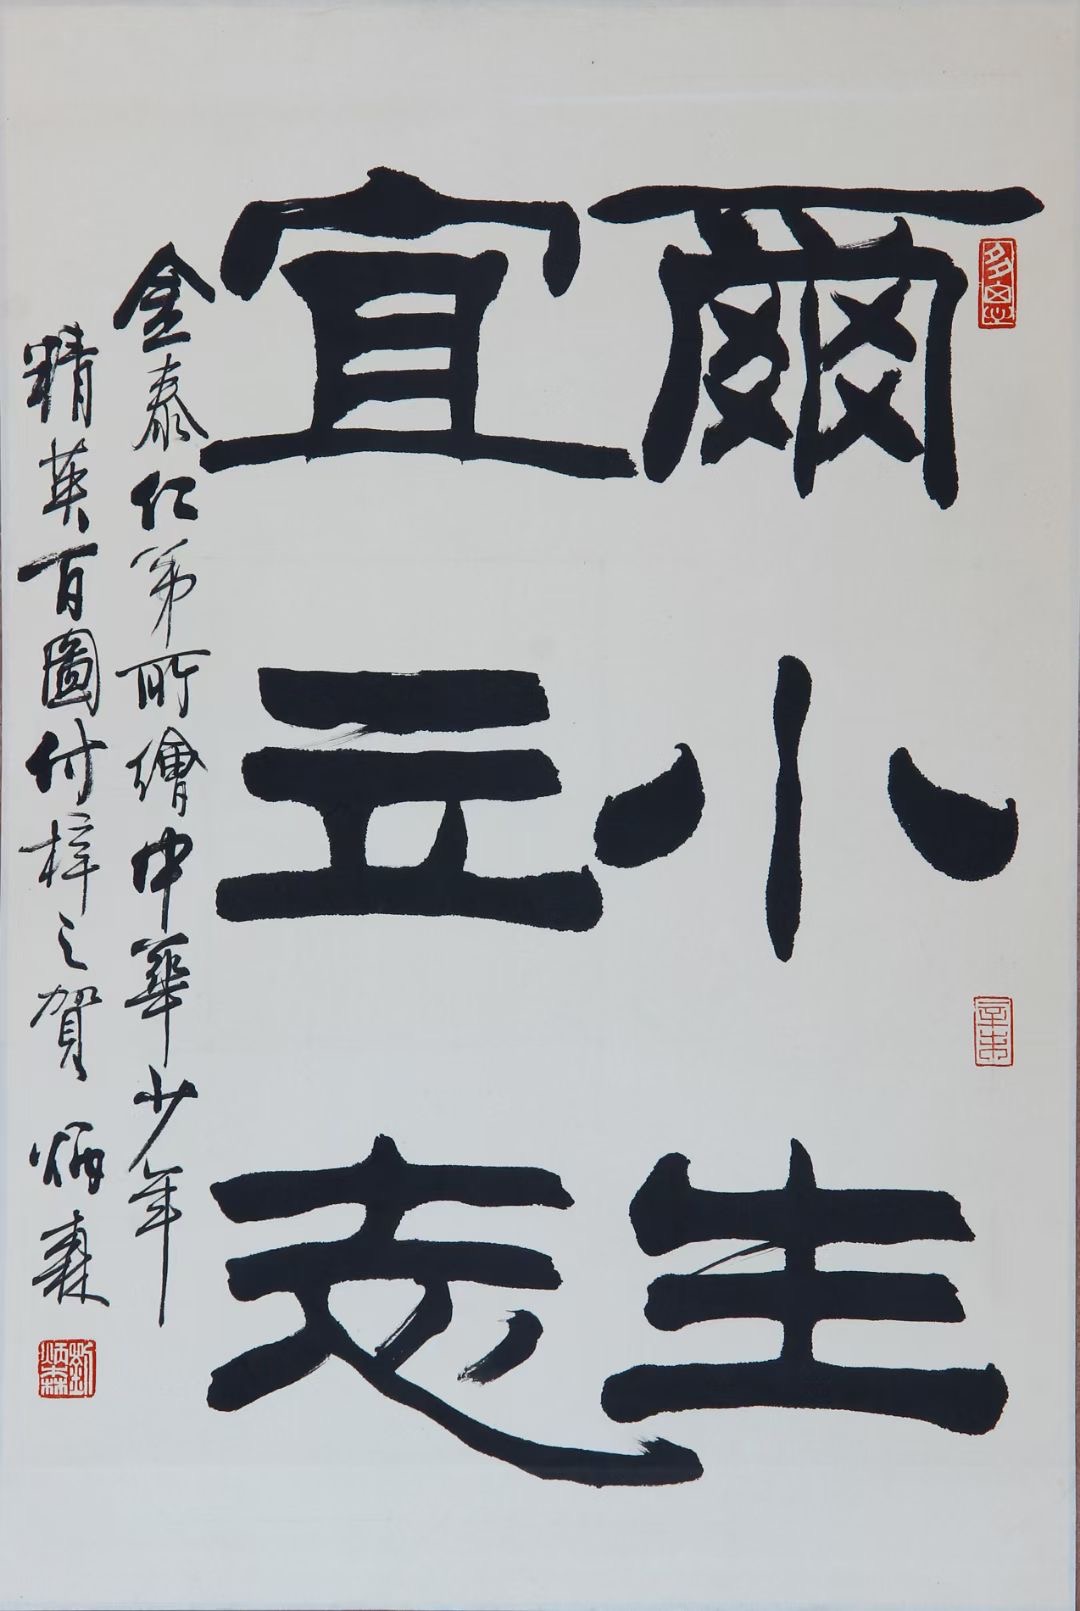 爾小生
宜立志
金泰仁弟所繪中華少年
精英百圖付梓之賀 炳森
辛未
劉炳森